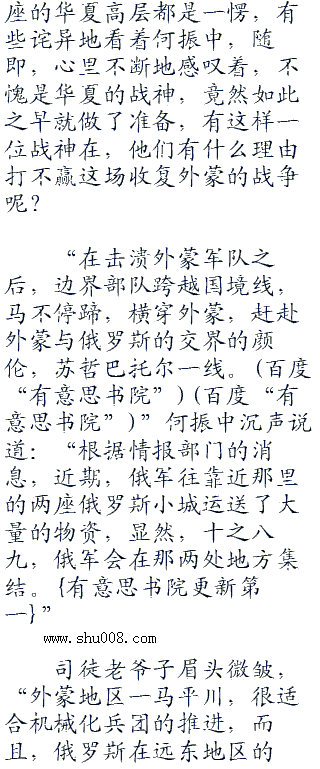 座的华夏高层都是一愣，有
些诧异地看着何振中，随
即，心里不断地感叹着，不
愧是华夏的战神，竟然如此
之早就做了准备，有这样一
位战神在，他们有什么理由
打不赢这场收复外蒙的战争
呢？
“在击溃外蒙军队之
后，边界部队跨越国境线，
马不停蹄，横穿外蒙，赶赴
外蒙与俄罗斯的交界的颜
伦，苏哲巴托尔一线。(百度
“有意思书院”)(百度“有
意思书院”)”何振中沉声说
道：“根据情报部门的消
息，近期，俄军往靠近那里
的两座俄罗斯小城运送了大
量的物资，显然，十之八
九，俄军会在那两处地方集
结。{有意思书院更新第
一}”
www.shu008.com
司徒老爷子眉头微皱，
“外蒙地区一马平川，很适
合机械化兵团的推进，而
且，俄罗斯在远东地区的